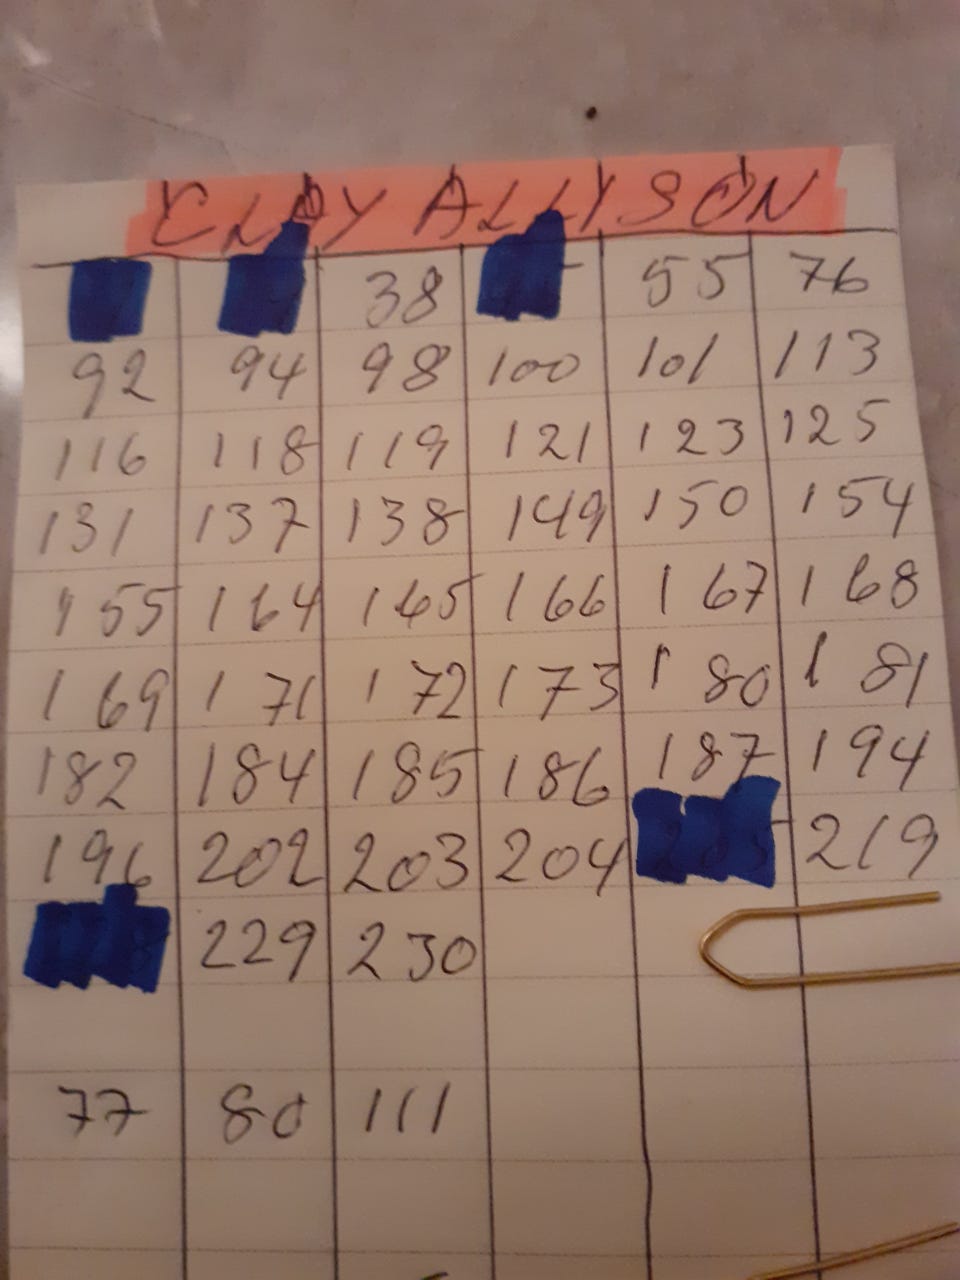 CLAY ALLYSON
38 55 76
92 94 98 100 101 113
116 118 119 121 123 125
131 137 138 149 150 154
155 164 165 166 167 168
169 171 172 173 180 181
182 184 185 186 187 194
196 202 203 204 219
229 230
77 80 111